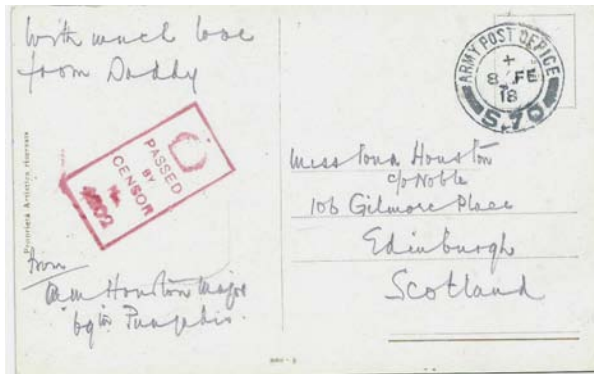 With much love
from Daddy
Proprietà Artistica riservata
PASSED
BY
CENSOR
No
From
Houston Major
Punjabis.
ARMY POST OFFICE
+
8 FE
18
S.70
Miss Iona Houston
c/o Noble
106 Gilmore Place
Edinburgh
Scotland